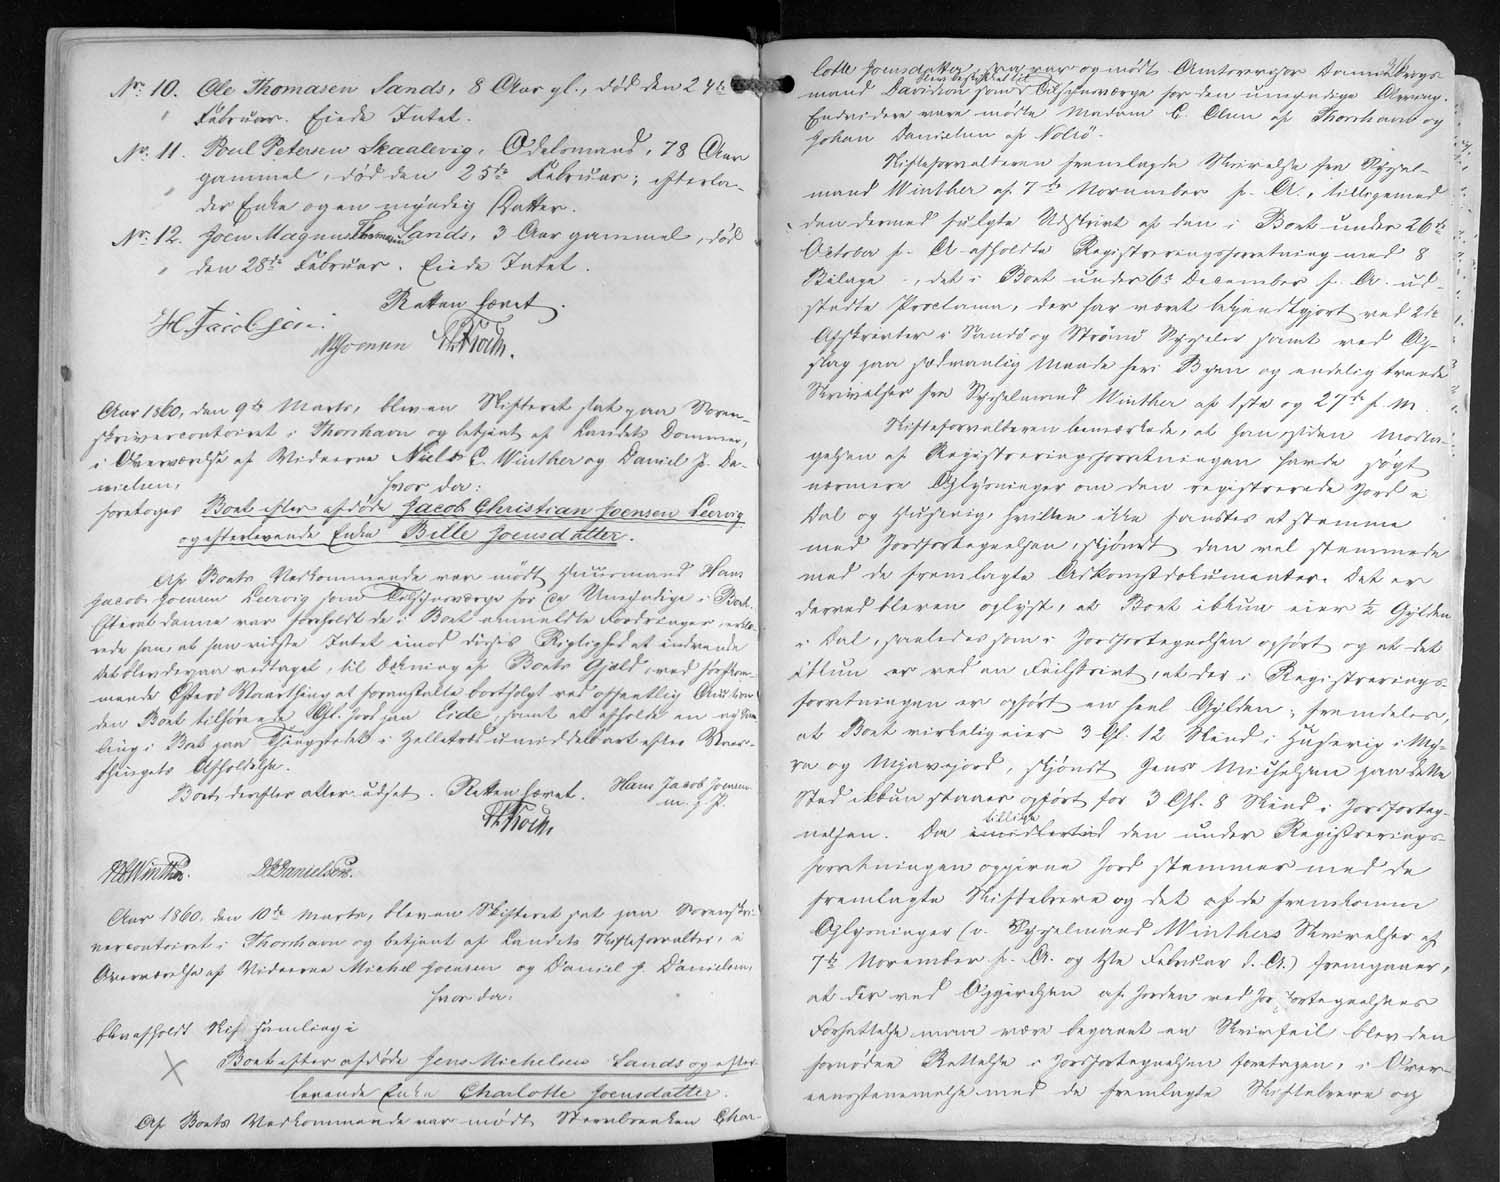 No. 10. Ole Thomasen Sands, 8 Aar gl., død den 24de
" Februar. Eiede Intet.
No. 11. Poul Petersen Skaalevig, Odelsmand, 78 Aar
" gammel, død den 25de Februar; efterla-
der Enke og en myndig Datter.
No. 12. Joen Magnus Thomasen Sands, 3 Aar gammel, død
" den 28de Februar. Eiede Intet.
Retten hævet.
H. Jacobsen.
MJoensen HKoch.
Aar 1860, den 9de Marts, blev en Skifteret sat paa Soren-
skrivercontoiret i Thorshavn og betjent af Landets Dommer,
i Overværelse af Vidnerne Niels C. Winther og Daniel J. Da-
nielsen,
hvor da:
foretoges Boet efter afdøde Jacob Christian Joensen Leervig
og efterlevende Enke Bille Joensdatter.
Af Boets Vedkommende var mødt Huusmand Hans
Jacob Joensen Leervig som Tilsynsværge for de Umyndige i Boet.
Efterat denne var foreholdt de i Boet anmeldte Fordringer erklæ-
rede han, at han vidste Intet imod disses Rigtighed at indvende
Det blev derpaa vedtaget, til Dækning af Boets Gjæld, ved førstkom-
mende Østerø Vaarthing at foranstalte bortsolgt ved offentlig Auction
den Boet tilhørende Gl. Jord paa Eide, samt at afholde en ny Sam-
ling i Boet paa Thingstedet i Zelletræd umiddelbart efter Vaar-
thingets Afholdelse.
Boet derefter atter udsat. Retten hævet. Hans Jacob Joensen
m. f. P.
HKoch.
NCWinther. DJDanielsen.
Aar 1860, den 10de Marts, blev en Skifteret sat paa Sorenskri-
vercontoiret i Thorshavn og betjent af Landets Skifteforvalter, i
Overværelse af Vidnerne Michel Joensen og Daniel J. Danielsen,
hvor da:
blev afholdt Skiftesamling i
X Boet efter afdøde Jens Michelsen Sands og efter-
levende Enke Charlotte Joensdatter.
Af Boets Vedkommende var mødt Stervboenken Char-
lotte Joensdatter, og mødt
mand Davidson som blev beskikket til Tilsynsværge for den umyndige Arving.
Endvidere vare mødte Madam C. Olsen af Thorshavn og
Johan Danielsen af Nolsø.
Skifteforvalteren fremlagde Skrivelse fra Syssel-
mand Winther af 7de November f. A., tilligemed
den dermed fulgte Udskrift af den i Boet under 26de
October f. A. afholdte Registreringsforretning med 8
Bilage, det i Boet under 6te December f. A. ud-
stædte Proclama, der har været bekjendtgjort ved 2de
Afskrivter i Sandø og Strømø Sysseler samt ved Op-
slag paa sædvanlig Maade her i Byen og endelig tvende
Skrivelser fra Sysselmand Winther af 1ste og 27de f. M.
Skifteforvalteren bemærkede, at han siden Modta-
gelsen af Registreringsforretningen havde søgt
nærmere Oplysninger om den registrerede Jord i
Dal og Husevig, hvilken ikke fandtes at stemme
med Jordfortegnelsen, skjøndt den vel stemmede
med de fremlagte Adkomstdokumenter. Det er
derved bleven oplyst, at Boet ikkun eier ½ Gylden
i Dal, saaledes som i Jordfortegnelsen opført og at det
ikkun er ved en Feilskrivt, at der i Registrerings-
forretningen er opført en heel Gylden; fremdeles,
at Boet virkelig eier 3 Gl. 12 Skind i Husevig i My-
re og Mjavejord, skjøndt Jens Michelsen paa dette
Sted ikkun staaer opført for 3 Gl. 8 Skind i Jordforteg-
nelsen. Da imidlertid den under Registrerings-
forretningen opgivne Jord stemmer med de
fremlagte Skiftebreve og det af de fremkomne
Oplysninger (v. Sysselmand Winthers Skrivelser af
7de November f. A. og 1ste Februar d. A.) fremgaaer,
at der ved Opgivelsen af Jorden ved Jordfortegnelsens
Forfattelse maa være begaaet en Skrivfeil blev den
fornødne Rettelse i Jordfortegnelsen foretagen, i Over-
eensstemmelse med de fremlagte Skiftebreve og